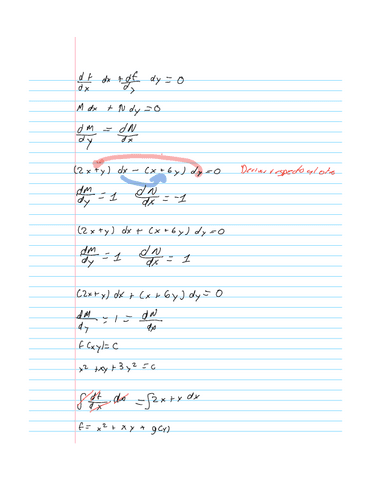 df/dx dx + df/dy dy = 0
M dx + N dy = 0
dM/dy = dN/dx
(2x+y) dx - (x+6y) dy = 0 Derivar respecto al otro
dM/dy = 1 dN/dx = -1
(2x+y) dx + (x+6y) dy = 0
dM/dy = 1 dN/dx = 1
(2x+y) dx + (x+6y) dy = 0
dM/dy = 1 = dN/dx
f(xy) = C
x² + xy + 3y² = C
∫ df/dx dx = ∫ 2x + y dx
f = x² + xy + g(y)